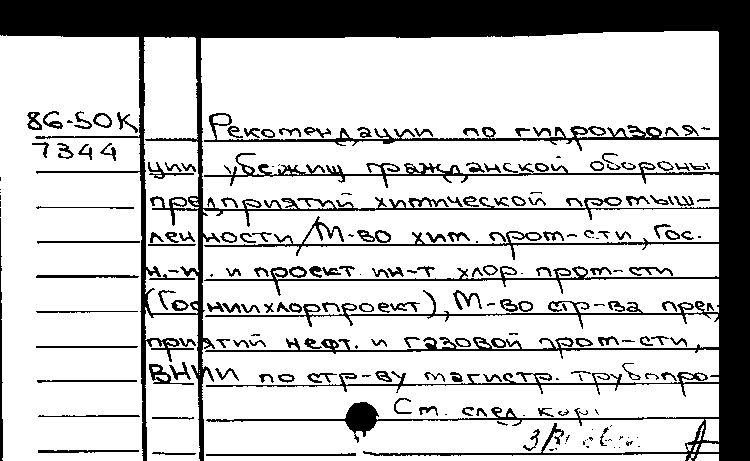 86-50К
7344
Рекомендации по гидроизоля-
ции убежищ гражданской обороны
предприятий химической промыш-
ленности/М-во хим. пром-сти, Гос.
н.-и. и проект. ин-т хлор. пром-сти
(Госниихлорпроект), М-во стр-ва пред-
приятий нефт. и газовой пром-сти,
ВНИИ по стр-ву магистр. трубопро-
См. след. кар